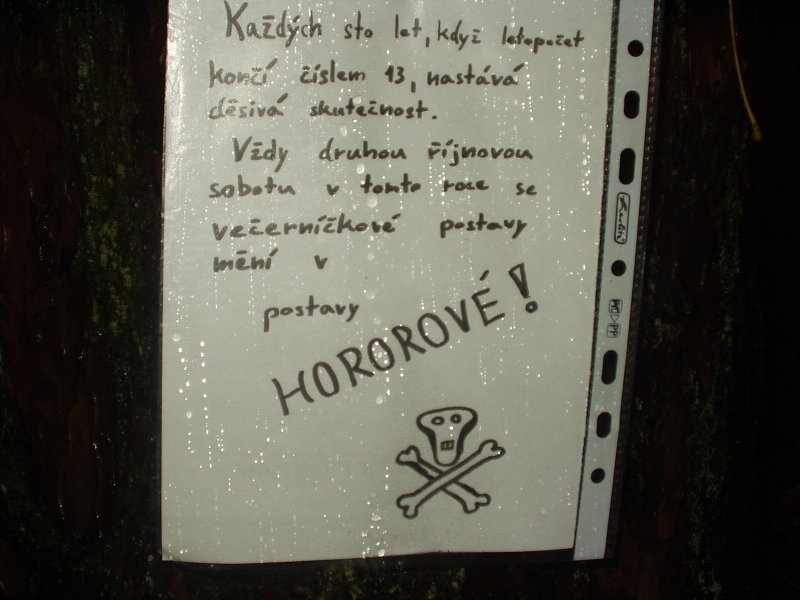 Každých sto let, když letopočet
končí číslem 13, nastává
děsivá skutečnost.
Vždy druhou říjnovou
sobotu v tomto roce se
večerníčkové postavy
mění v
postavy
HOROROVÉ!
PP